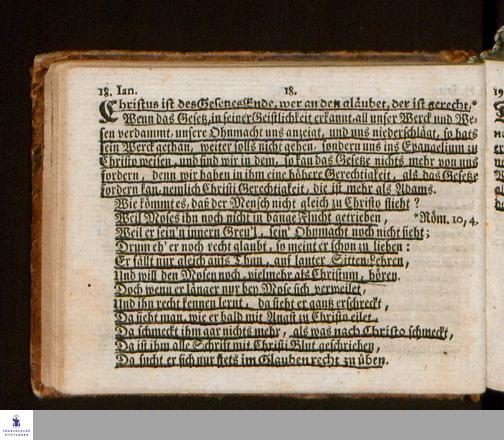 18. Ian. 18.
Christus ist des Gesetzes Ende, wer an den gläubet, der ist gerecht.*
Wenn das Gesetz, in seiner Geistlichkeit erkannt, all unser Werck und We-
sen verdammt, unsre Ohnmacht uns anzeigt, und uns niederschlägt, so hats
sein Werck gethan, weiter solls nicht gehen, sondern uns ins Evangelium zu
Christo weisen, und sind wir in dem, so kan das Gesetze nichts mehr von uns
fordern, denn wir haben in ihm eine höhere Gerechtigkeit, als das Gesetze
fordern kan, nemlich Christi Gerechtigkeit, die ist mehr als Adams.
Wie kömmt es, daß der Mensch nicht gleich zu Christo flieht?
Weil Moses ihn noch nicht in bange Flucht getrieben, *Röm. 10, 4.
Weil er sein'n innern Greu'l, sein' Ohnmacht noch nicht sieht;
Drum eh' er noch recht glaubt, so meint er schon zu lieben:
Er fällt nur gleich aufs Thun, auf lauter Sitten-Lehren,
Und will den Mosen noch, vielmehr als Christum, hören.
Doch wenn er länger nur bey Mose sich verweilet,
Und ihn recht kennen lernt, da steht er gantz erschreckt,
Da sieht man, wie er bald mit Angst zu Christo eilet,
Da schmeckt ihm gar nichts mehr, als was nach Christo schmeckt,
Da ist ihm alle Schrift mit Christi Blut geschrieben,
Da sucht er sich nur stets im Glauben recht zu üben.
19
FRANCKESCHE
STIFTUNGEN